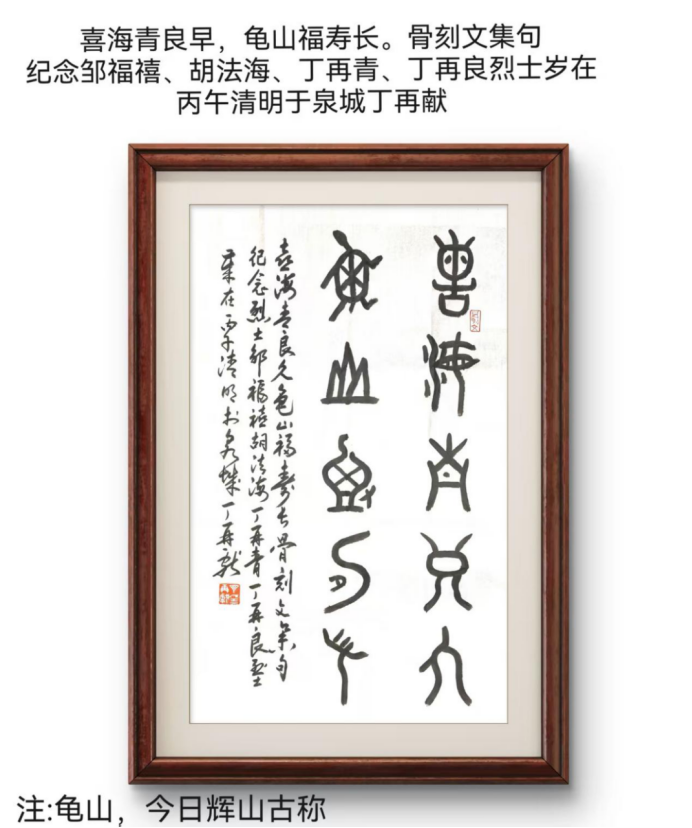 喜海青良早，龟山福寿长。骨刻文集句
纪念邹福禧、胡法海、丁再青、丁再良烈士岁在
丙午清明于泉城丁再献
喜海青良久
龟山福寿长
喜海青良久龟山福寿长骨刻文集句
纪念烈士邹福禧胡法海丁再青丁再良烈士
岁在丙午清明于泉城丁再献
注:龟山，今日辉山古称